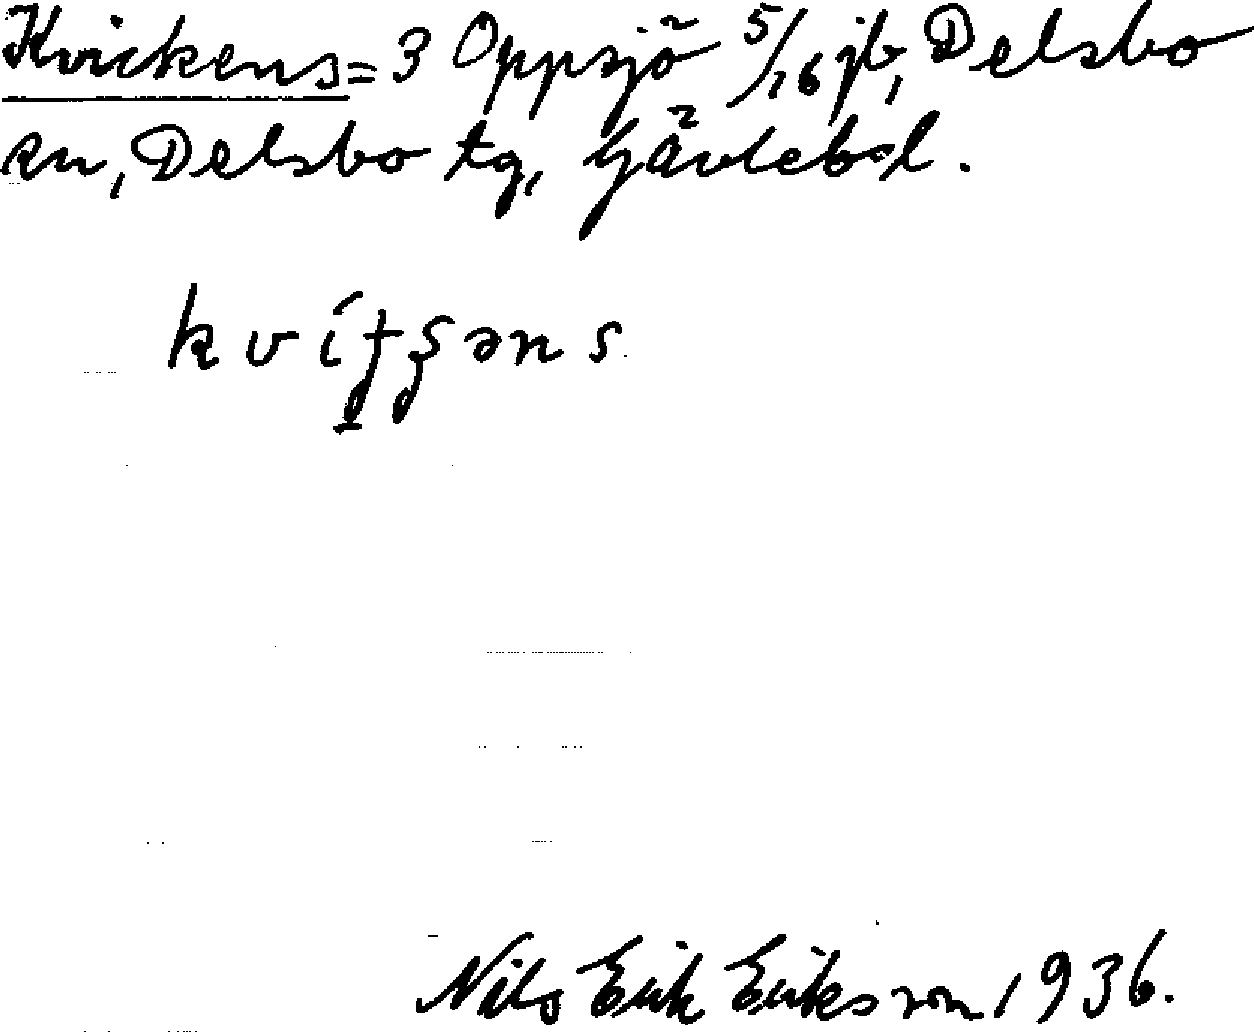 Kvickens = 3 Oppsjö 5/16 jb, Delsbo
sn, Delsbo tg, Gävlebol.
Nils Erik Eriksson, 1936.